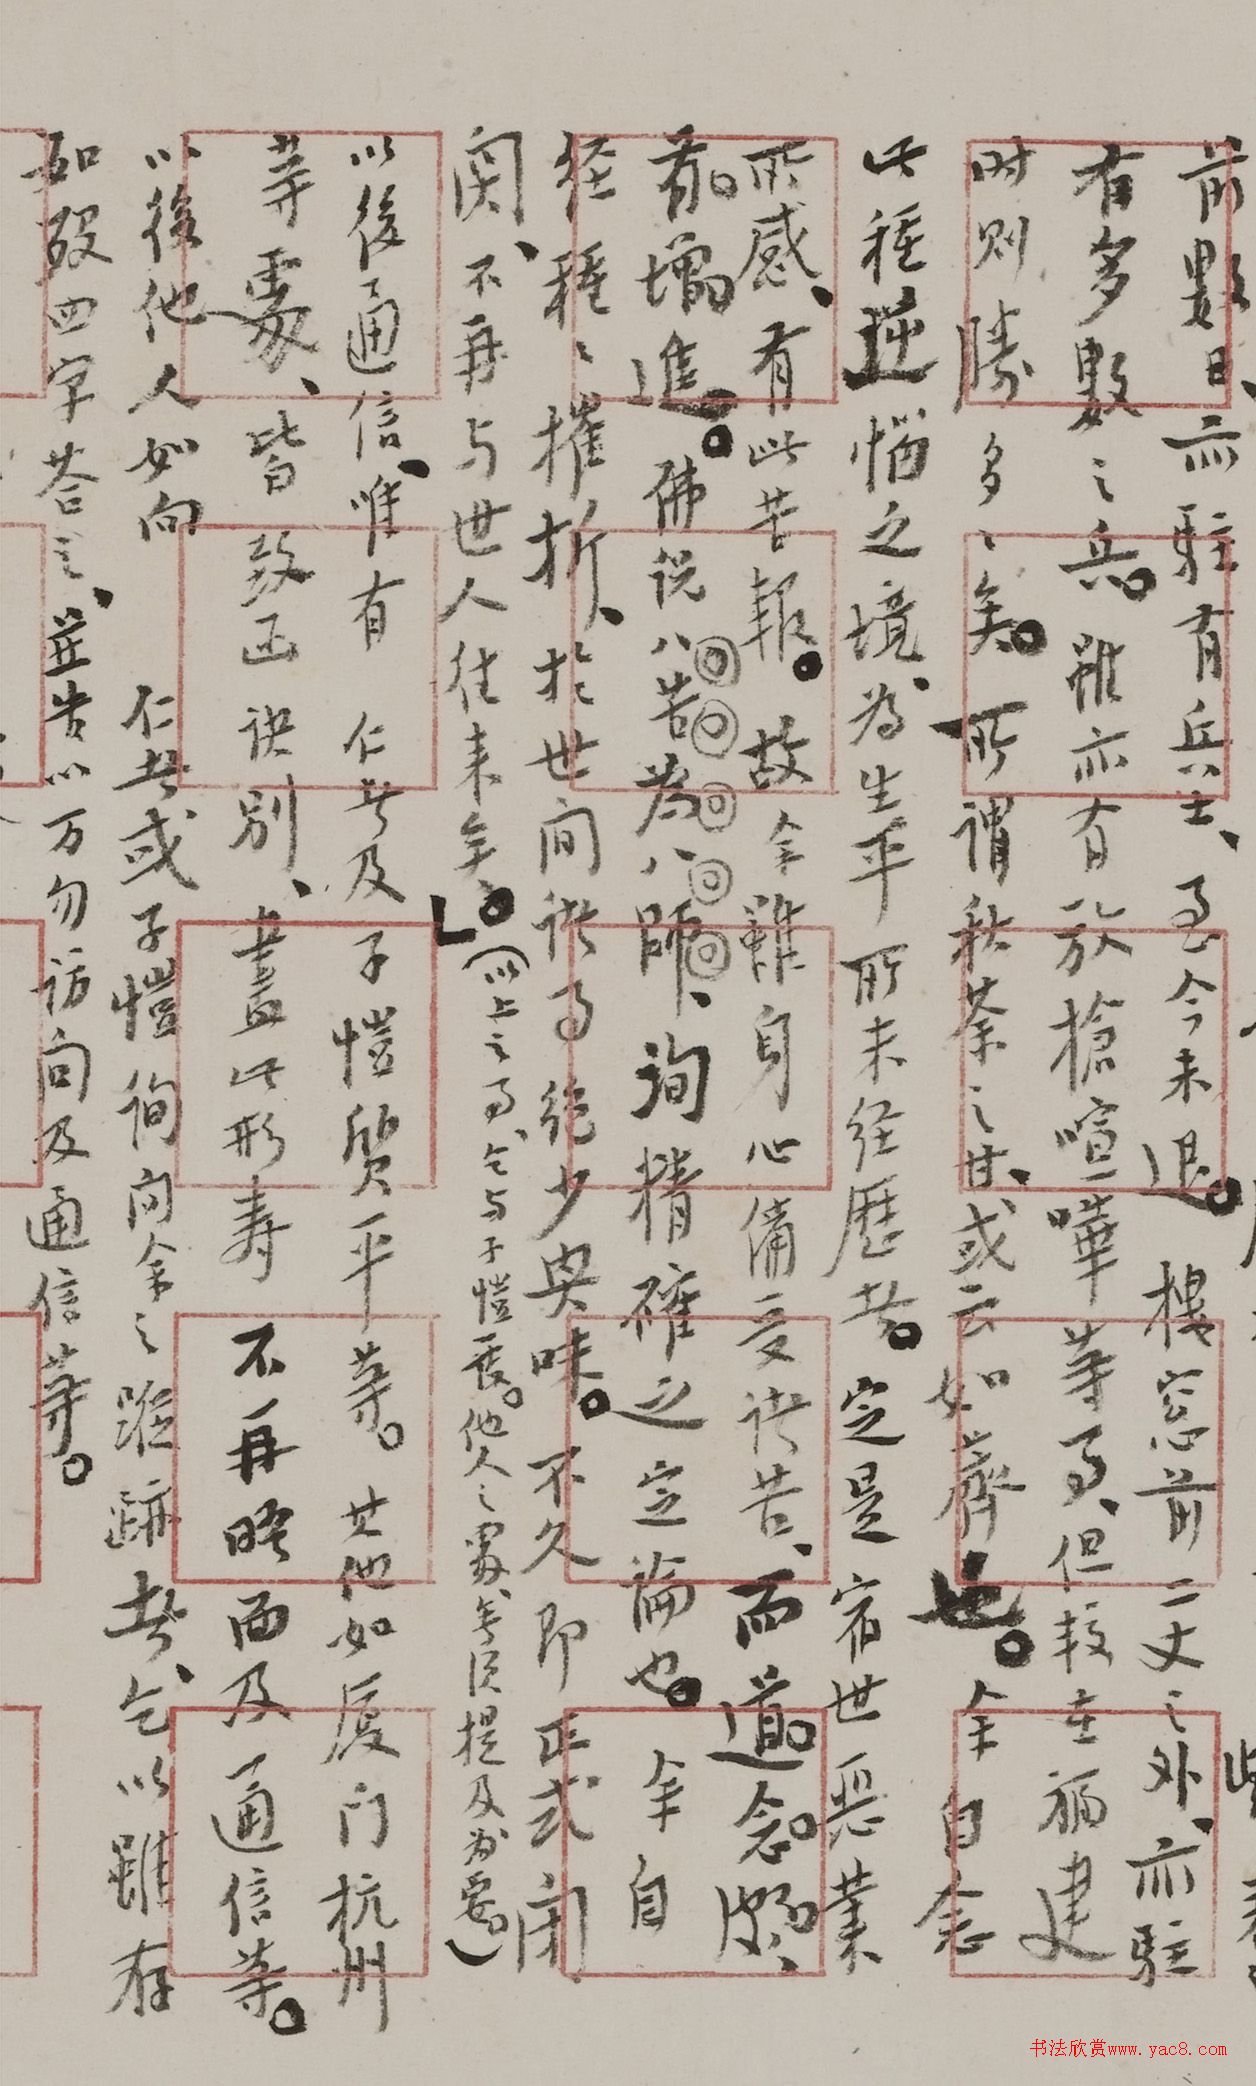 前數日、亦駐有兵士、至今未退。樓窓前二丈之外、亦駐
有多數之兵。雖亦有放槍喧嘩等事、但較在福建
时则勝多々矣。所謂秋荼之甘、或云如薺也。余自念
此種逆惱之境、為生平所未经歷者。定是宿世惡業
所感、有此苦報。故余雖身心備受诸苦、而道念頗
有增進。佛说八苦為八師、洵精確之定論也。余自
经種々摧折、於世间诸事绝少興味。不久即正式闭
関、不再与世人往来矣。」（以上之事、乞与子愷一談。他人之處、無須提及为要。）
以後通信、唯有仁者及子愷質平等。其他如厦门杭州
等處、皆致函诀别、盡此形寿不再晤面及通信等。
以後他人如向仁者或子愷询问余之踪跡者、乞以雖存
如殁四字荅之、並告以万勿访问及通信等。
书法欣赏www.yac8.com